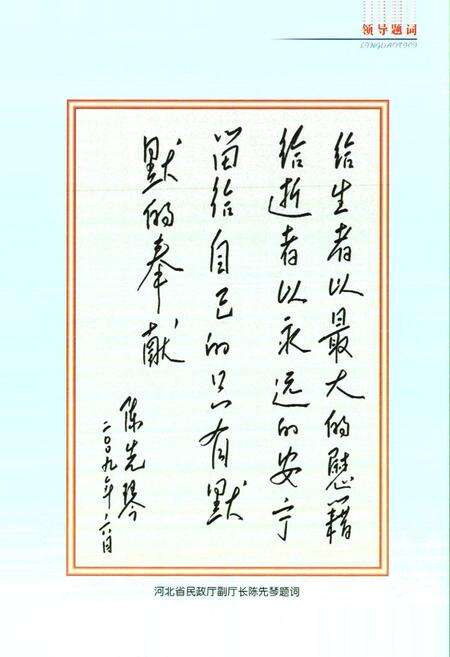 领导题词
LINGDAOTICI
给生者以最大的慰籍
给逝者以永远的安宁
留给自己的只有默
默的奉献
陈先琴
二〇〇九年六月
河北省民政厅副厅长陈先琴题词